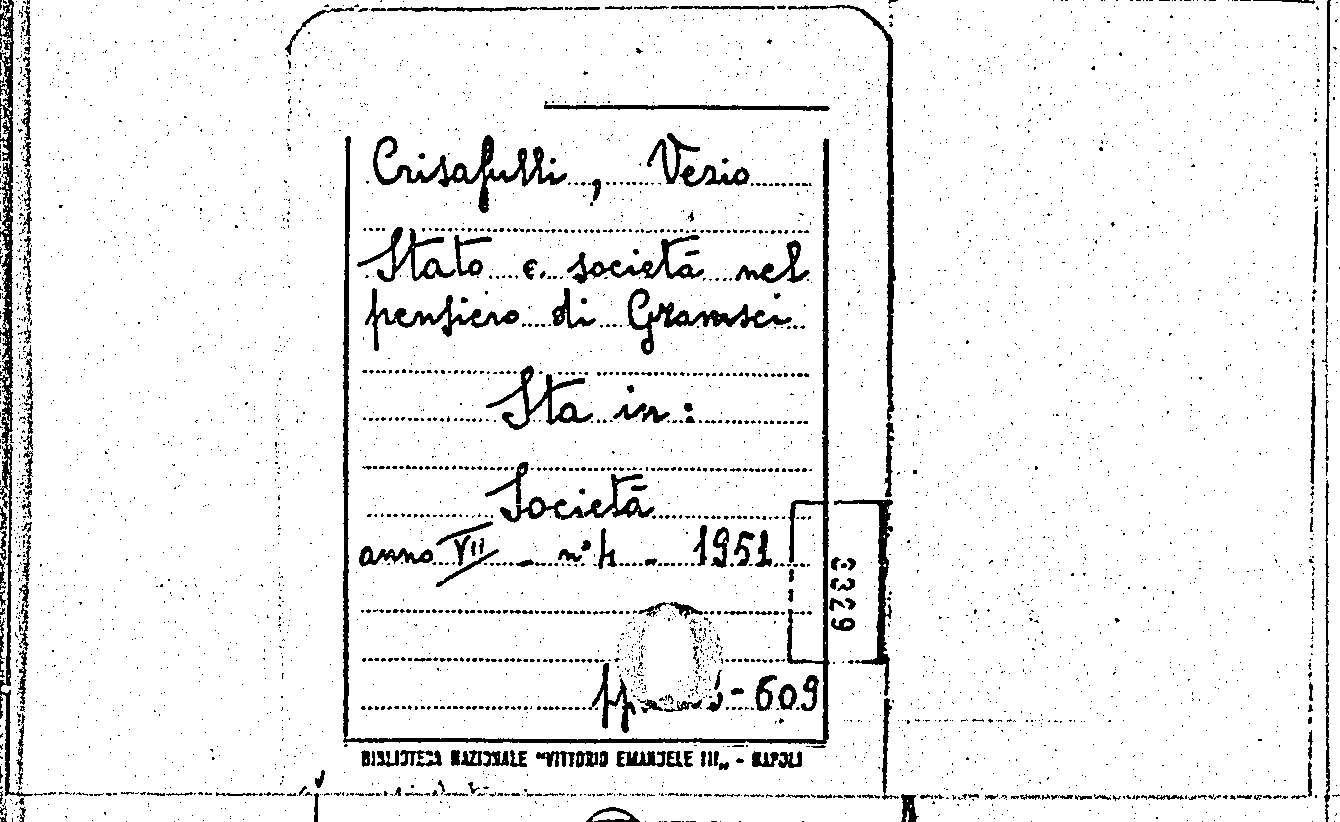 Crisafulli, Vezio
Stato e società nel
pensiero di Gramsci
Sta in:
Società
anno VII - n° 4 - 1951
3329
pp. -609
BIBLIOTECA NAZIONALE "VITTORIO EMANUELE III„ - NAPOLI